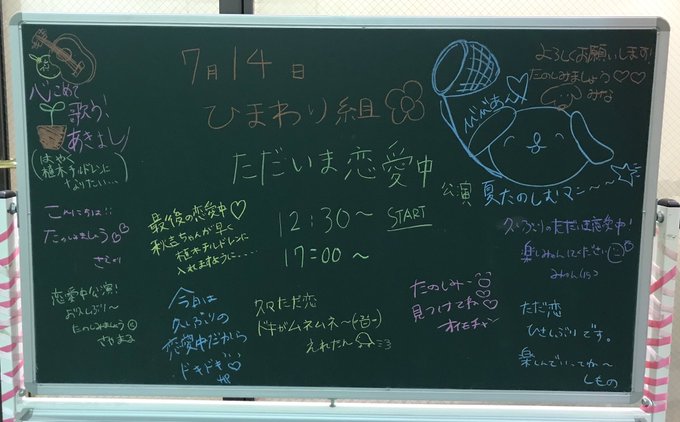 7月14日
ひまわり組
ただいま恋愛中
公演
12:30〜 START
17:00〜
心こめて
歌う!
あきよし
(はやく
植木チルドレンに
なりたい…)
こんにちは!!
たのしみましょう
恋愛中公演!
お久しぶり〜
たのしみましょう
さやまる
最後の恋愛中♡
秋吉ちゃんが早く
植木チルドレンに
入れますように…
今日は
久しぶりの
恋愛中だから
ドキドキ
久々ただ恋
ドキがムネムネ〜
えれたん
たのしみー
見つけてね
よろしくお願いします!
たのしみましょう♡♡
みな
夏たのしむマン〜〜
久しぶりのただいま恋愛中!
楽しみましょう
ただ恋
ひさしぶりです。
楽しんでいってね〜
しもの